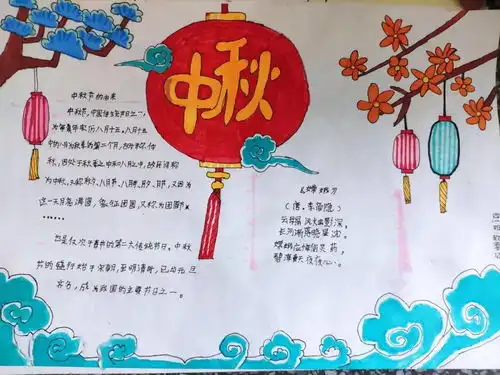 中秋
中秋节的由来
中秋节,中国传统节日之一,
为每年农历八月十五。八月十五
中的八月为秋季的第二个月,古时称
秋,因处于秋季之中和八月之中,故民间称
为中秋,又称秋夕、八月节、八月半、月夕、月节,又因为
这一天月亮满圆,象征团圆,又称为团圆节。
……
是仅次于春节的第二大传统节日。中秋
节的盛行始于宋朝,至明清时,已与元旦
齐名,成为我国的主要节日之一。
《嫦娥》
(唐·李商隐)
云母屏风烛影深,
长河渐落晓星沉。
嫦娥应悔偷灵药,
碧海青天夜夜心。